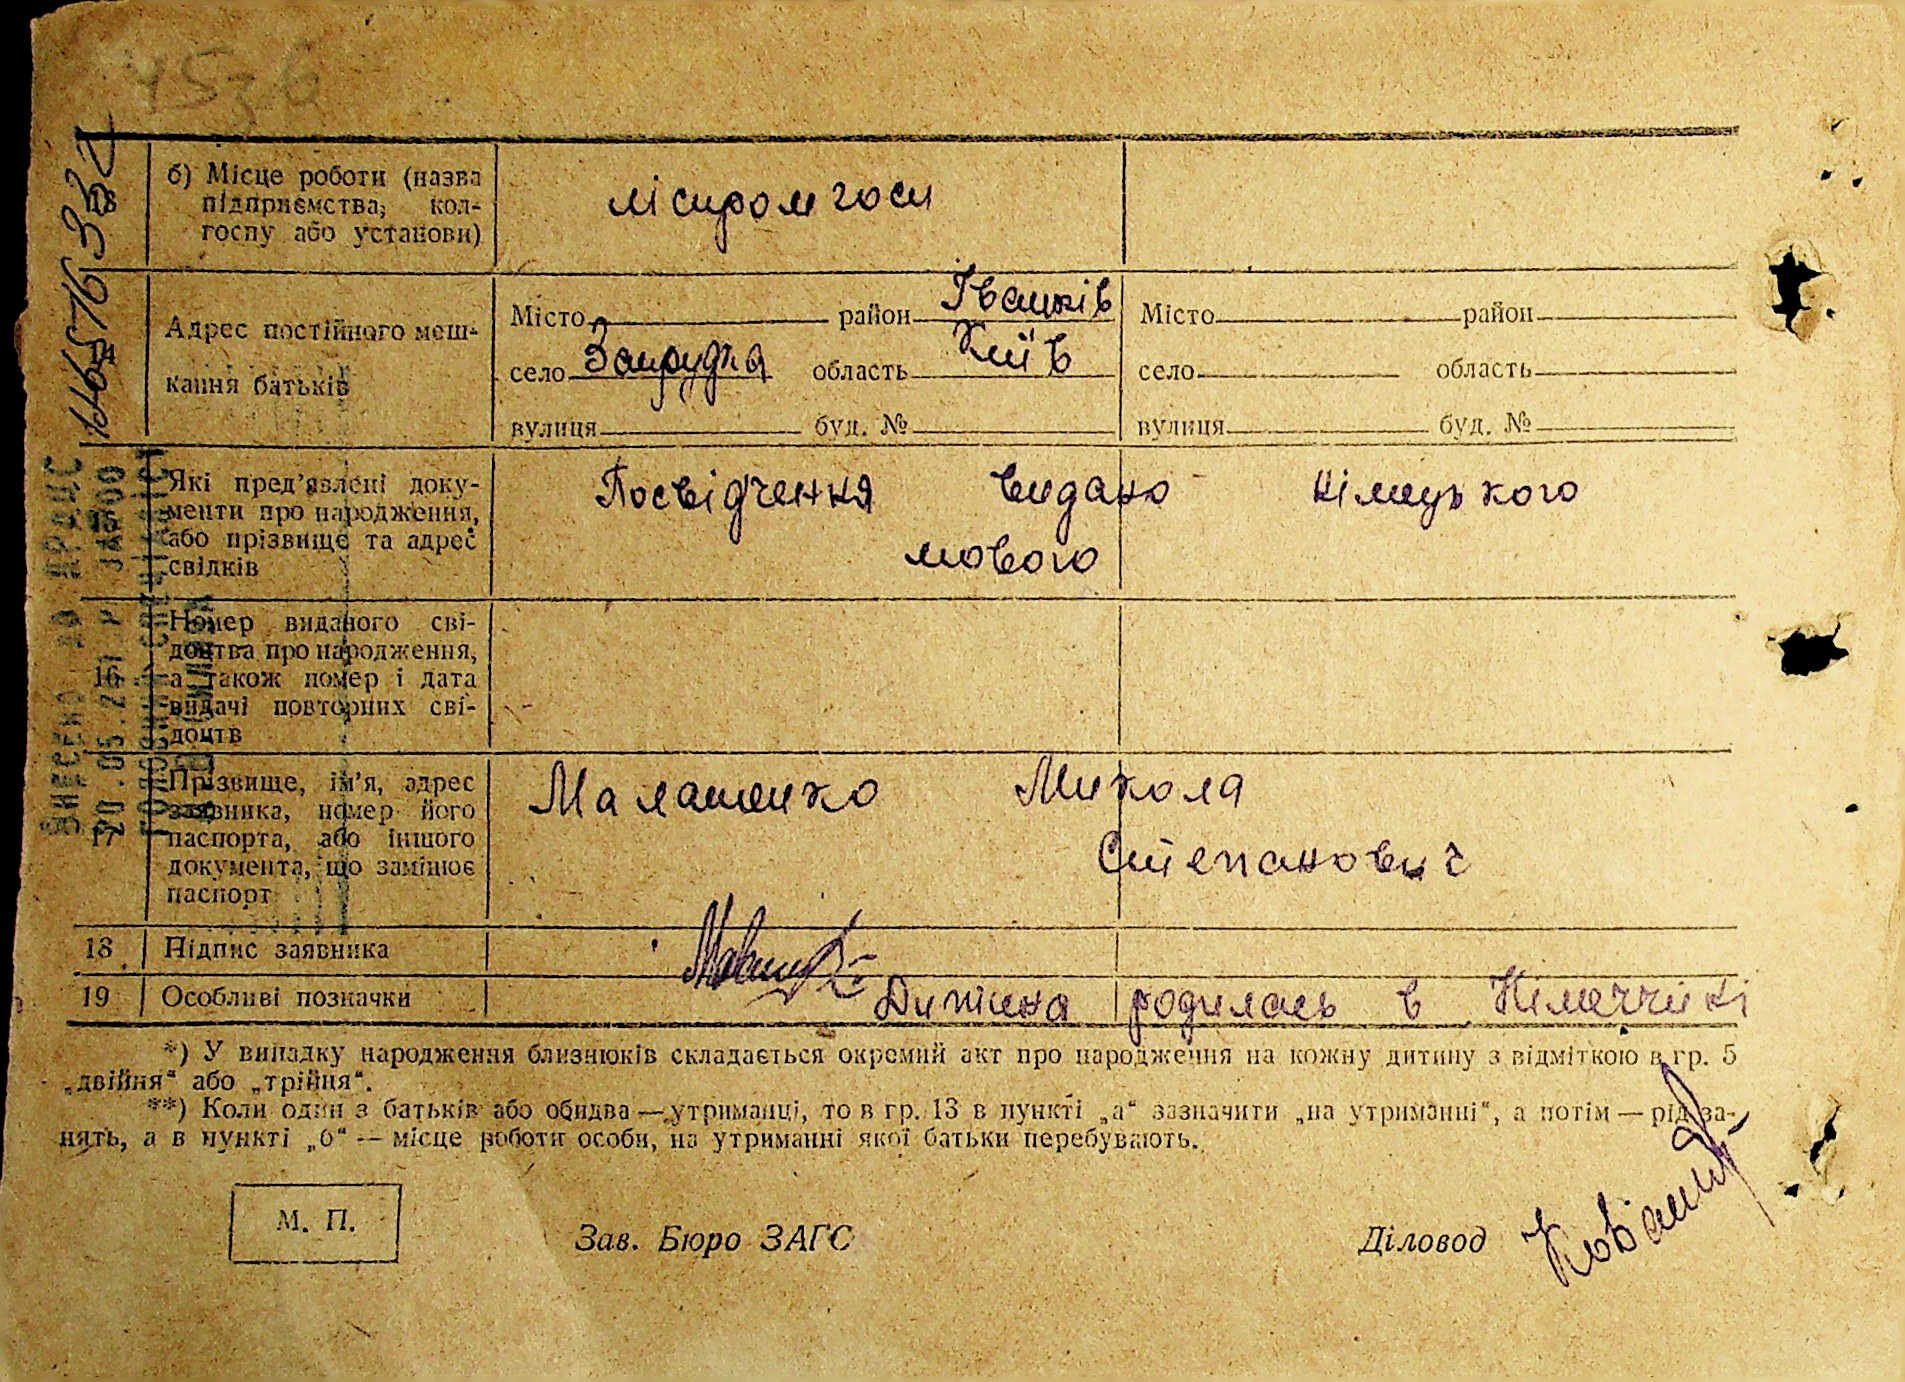 б) Місце роботи (назва
підприємства, кол-
госпу або установи)
ліспромгосп
Адрес постійного меш-
кання батьків
Місто район Іванків
село Запрудка область Київ
вулиця буд. №
Місто район
село область
вулиця буд. №
Які пред'явлені доку-
менти про народження,
або прізвище та адрес
свідків
Посвідчення видано німецького
мовою
16
Номер виданого сві-
доцтва про народження,
а також номер і дата
видачі повторних сві-
доцтв
17
Прізвище, ім'я, адрес
заявника, номер його
паспорта, або іншого
документа, що замінює
паспорт
Малашенко Микола
Степанович
18 Підпис заявника
19 Особливі позначки
Дитина родилась в Німеччині
*) У випадку народження близнюків складається окремий акт про народження на кожну дитину з відміткою в гр. 5
„двійня“ або „трійня“.
**) Коли один з батьків або обидва — утриманці, то в гр. 13 в пункті „а“ зазначити „на утриманні“, а потім — рід за-
нять, а в пункті „б“ — місце роботи особи, на утриманні якої батьки перебувають.
М. П.
Зав. Бюро ЗАГС
Діловод